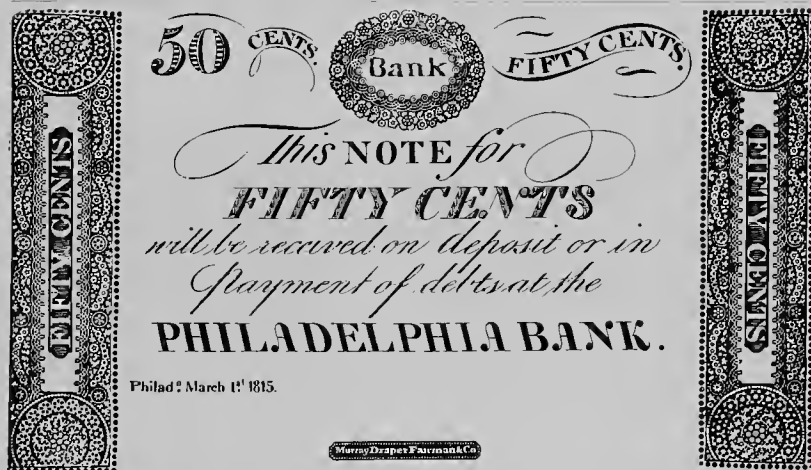 50 CENTS. Bank FIFTY CENTS.
FIFTY CENTS
This NOTE for
FIFTY CENTS
will be received on deposit or in
Payment of debts at the
PHILADELPHIA BANK.
Philad.ª March 1st 1815.
Murray Draper Fairman & Co
FIFTY CENTS